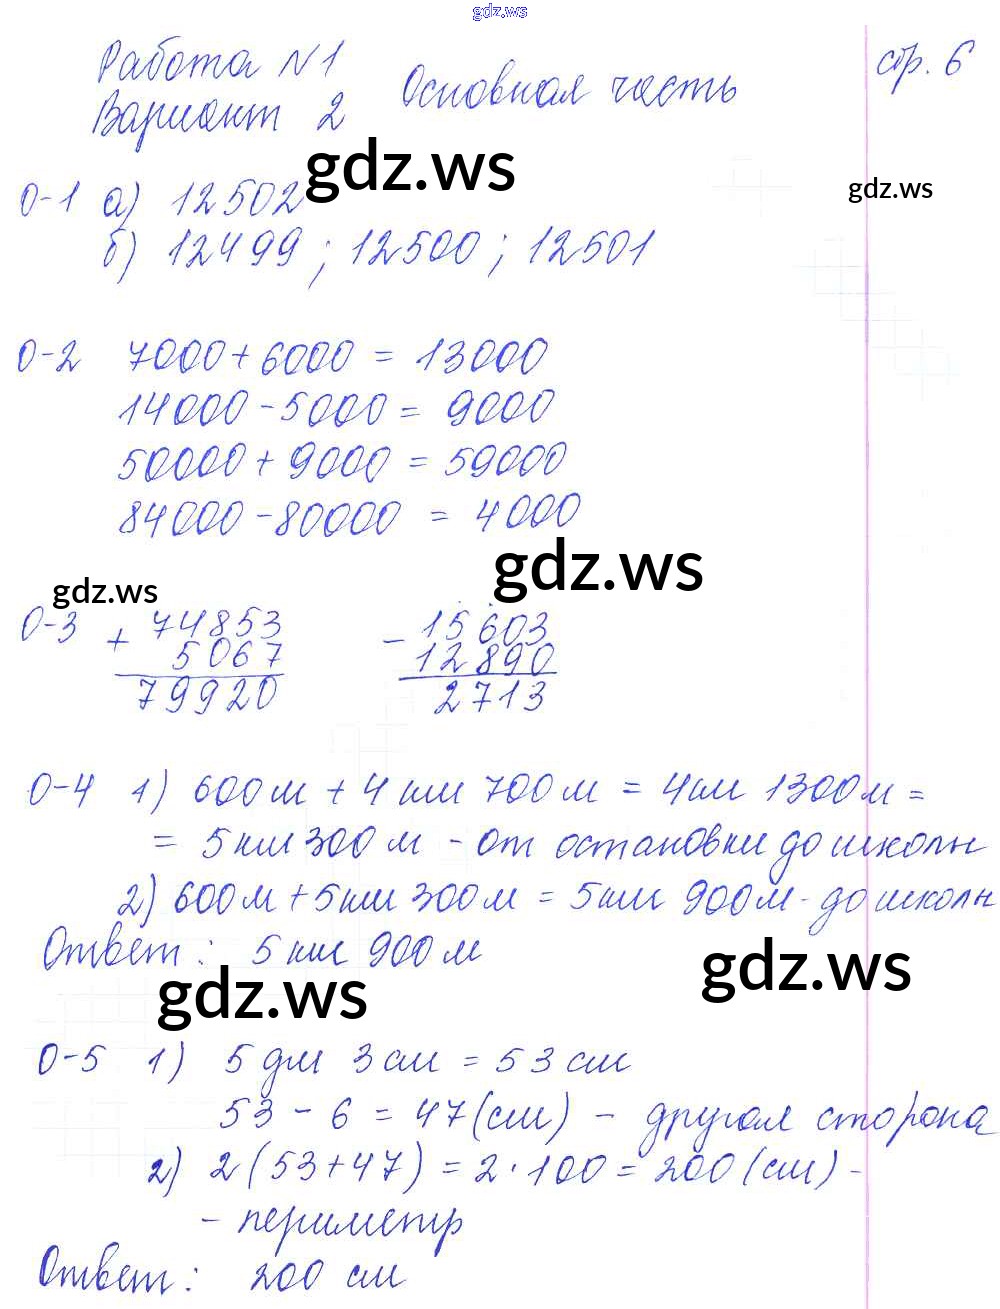 gdz.ws
Работа №1 стр. 6
Вариант 2 Основная часть
gdz.ws
gdz.ws
О-1 а) 12502
б) 12499; 12500; 12501
О-2 7000 + 6000 = 13000
14000 - 5000 = 9000
50000 + 9000 = 59000
84000 - 80000 = 4000
gdz.ws
gdz.ws
О-3 + 74853 - 15603
5067 12890
79920 2713
О-4 1) 600 м + 4 км 700 м = 4 км 1300 м =
= 5 км 300 м - от остановки до школы
2) 600 м + 5 км 300 м = 5 км 900 м - до школы
Ответ: 5 км 900 м
gdz.ws
gdz.ws
О-5 1) 5 дм 3 см = 53 см
53 - 6 = 47 (см) - другая сторона
2) 2 (53 + 47) = 2 · 100 = 200 (см) -
- периметр
Ответ: 200 см